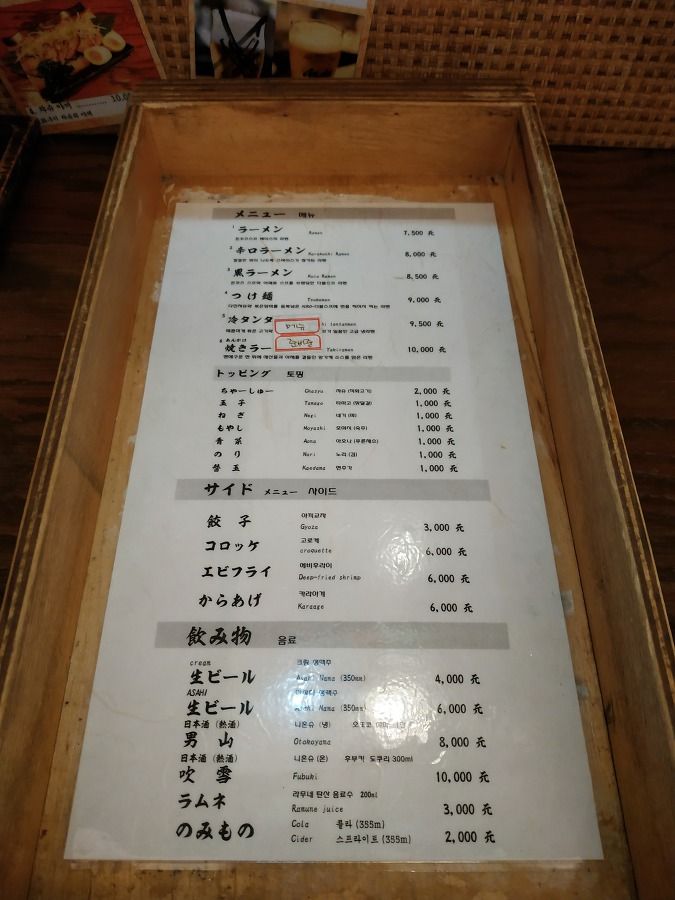 10,00
メニュー 메뉴
1 ラーメン Ramen 7,500 元
2 辛口ラーメン Karakuchi Ramen 8,000 元
3 黒ラーメン Kuro Ramen 8,500 元
4 つけ麺 Tsukemen 9,000 元
5 冷タンタ 메뉴 hi tantanmen 9,500 元
6 あんかけ
焼きラー 준비중 Yakiramen 10,000 元
トッピング 토핑
ちゃーしゅー Chasyu 차슈 (돼지고기) 2,000 元
玉子 Tamago 타마고 (맛달걀) 1,000 元
ねぎ Negi 네기 (파) 1,000 元
もやし Moyashi 모야시 (숙주) 1,000 元
青菜 Aona 아오나 (푸른채소) 1,000 元
のり Nori 노리 (김) 1,000 元
替玉 Kaedama 면추가 1,000 元
サイド メニュー 사이드
餃子 야끼교자 Gyoza 3,000 元
コロッケ 고로케 croquette 6,000 元
エビフライ 에비후라이 Deep-fried shrimp 6,000 元
からあげ 카라아게 Karaage 6,000 元
飲み物 음료
cream 크림 생맥주
生ビール Asahi Nama (350mm) 4,000 元
ASAHI 아사히 생맥주
生ビール Asahi Nama (350mm) 6,000 元
日本酒 (熱酒) 니혼슈 (냉)
男山 Otokoyama 8,000 元
日本酒 (熱酒) 니혼슈 (온) 후부키 도쿠리 300ml
吹雪 Fubuki 10,000 元
ラムネ 라무네 탄산 음료수 200ml
Ramune juice 3,000 元
のみもの Cola 콜라 (355m)
Cider 스프라이트 (355m) 2,000 元